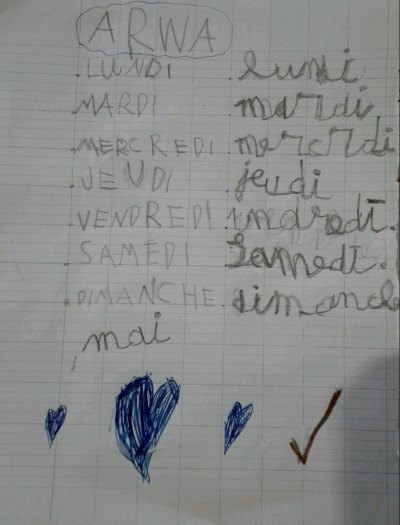 ARWA
LUNDI lundi
MARDI mardi
MERCREDI mercrdi
JEUDI jeudi
VENDREDI
SAMEDI Samedi.
DIMANCHE
mai